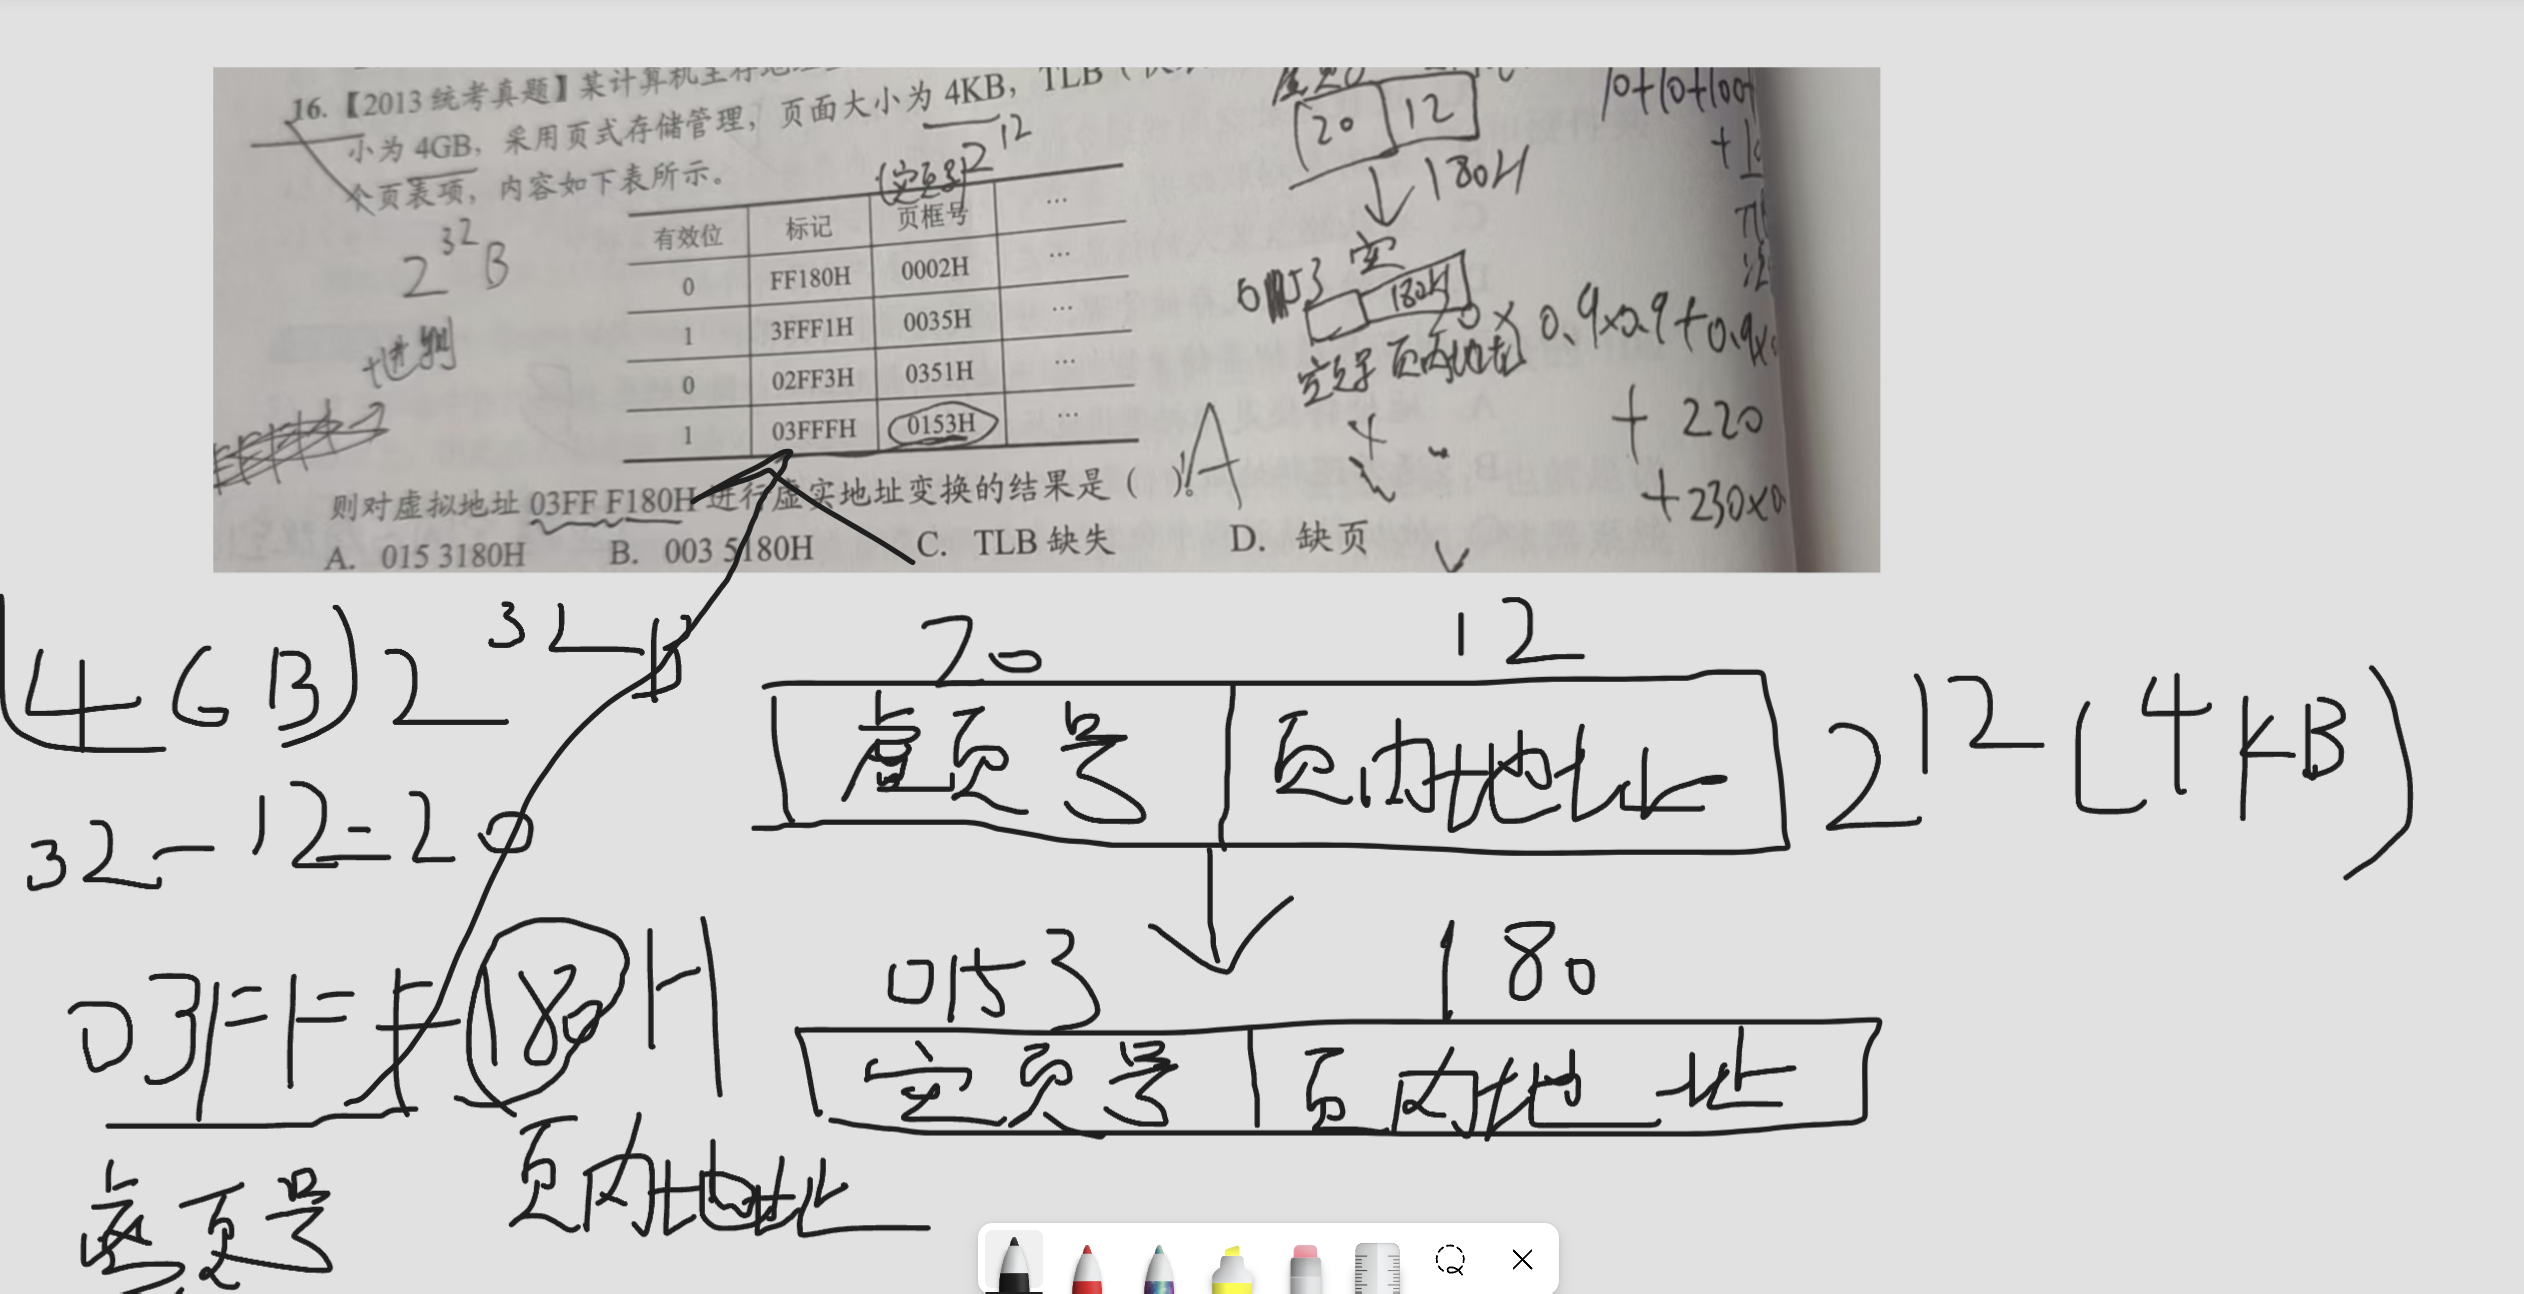 16.【2013 统考真题】某计算机主存地址
小为 4GB，采用页式存储管理，页面大小为 4KB，TLB（
个页表项，内容如下表所示。
2^12
(实页号)
有效位 标记 页框号 …
0 FF180H 0002H …
1 3FFF1H 0035H …
0 02FF3H 0351H …
1 03FFFH 0153H …
则对虚拟地址 03FF F180H 进行虚实地址变换的结果是（ ）。
A. 015 3180H B. 003 5180H C. TLB 缺失 D. 缺页
2^32 B
A
20 12
180H
实
180H
实页号 页内地址
10+10+100
0.9x0.9+0.9x
+ 220
+230x0
(4GB) 2^32 B
32-12=20
03FFF180H
虚页号 页内地址
20 12
虚页号 页内地址 2^12 (4KB)
0153 180
实页号 页内地址